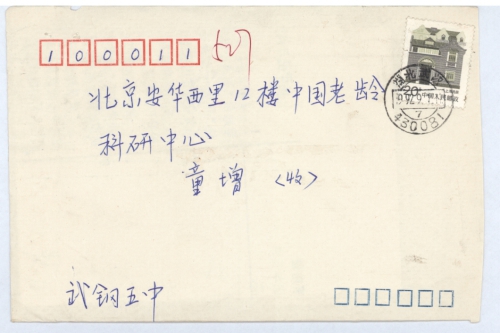 100011 507
北京安华西里12楼中国老龄
科研中心
童增 〈收〉
20
中国人民邮政
430081
7
武钢五中